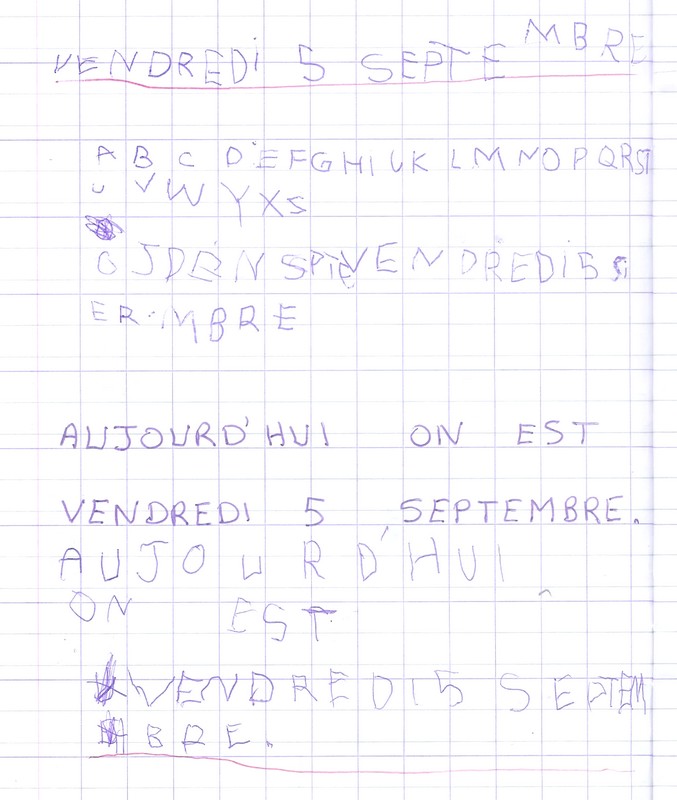 VENDREDI 5 SEPTEMBRE
A B C D E F G H I U K L M N O P Q R S T
U V W Y X S
VENDREDI 5
ER MBRE
AUJOURD'HUI ON EST
VENDREDI 5 SEPTEMBRE.
AUJOURD'HUI
ON EST
VENDREDI 5 SEPTEM
BRE.